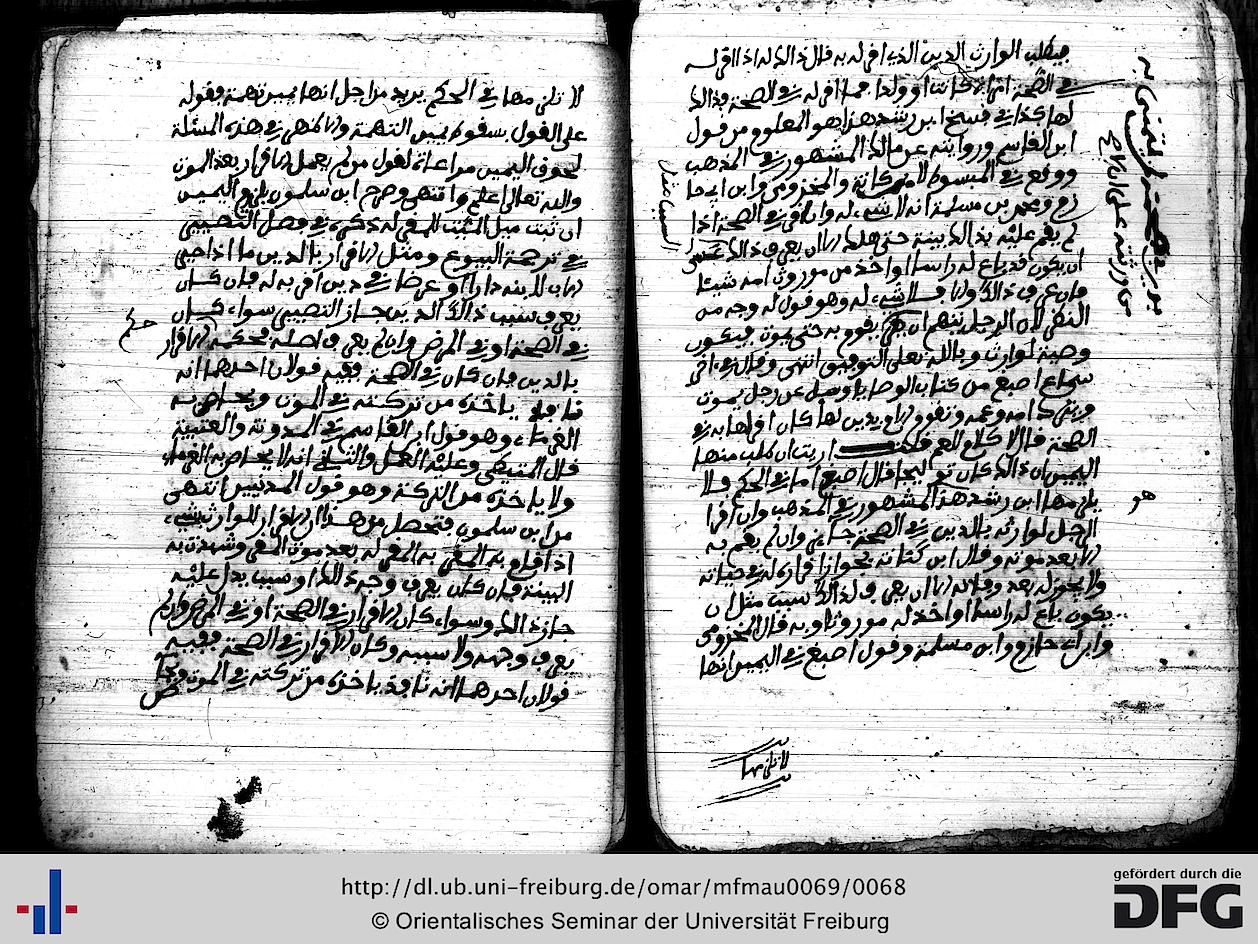 فيطلب الوارث الدين الذي اقر له به قال ذلك له اذا اقر له
في الصحة امراة كانت او ولدا مما اقر له في الصحة فذلك
لها كذا في ابن رشد هذا هو المعلوم من قول
ابن القاسم وروايته عن مالك المشهور في المذهب
ووقع في المبسوط لابن كنانة والمخزومي وابن ابي حا
زم ومحمد بن مسلمة انه لا شيء له وان اقر في الصحة اذا
لم يقم عليه بذلك بينة حتى هلك الا ان يعرف ذلك
ان يكون قد باع له راسا او اخذ من موروث امه شيئا
فان عرف ذلك والا فلا شيء له وهو قول له وجه من
النظر لان الرجل يتهم ان يقر يقوم به حتى يموت فيكون
وصية لوارث وبالله تعلى التوفيق انتهى وقال في
سماع اصبغ من كتاب الوصايا وسيل عن رجل يموت
ويترك امه وعمه وتقوم الام بدين لها كان اقر لها به في
الصحة فالا كلع للعم ارايت ان طلب منها
اليمين ان ذلك كان قال اصبغ اما في الحكم فلا
يلزمها ابن رشد هذا المشهور في المذهب وان اقرار
الرجل لوارثه بالدين في الصحة جائز وان لم يقم به
الا بعد موته وقال ابن كنانة بجواز اقراره له في حياته
ولا يجوز له بعد وفاته الا ان يعرف لذلك سبب مثل ان
يكون باع له راسا او اخذ له موروثا وبه قال المخزومي
وابن ابي حازم وابن مسلمة وقول اصبغ في اليمين انها
لا تلزمها
هو
لا تلزمها في الحكم يريد من اجل انها يمين تهمة فقوله
على القول بسقوط يمين التهمة والاظهر في هذه المسئلة
لحوق اليمين مراعاة لقول من لم يعمل الاقرار بعد الموت
والله تعالى اعلم وانتهى وصرح ابن سلمون بلزوم اليمين
ان ثبت ميل المثبت للمقر له ذكره في فصل التصيير
في ترجمة البيوع ومثل الاقرار بالدين ما اذا صير
الاب لابنه دارا او عرضا في دين اقر به له فان كان
يعرف سبب ذلك الدين جاز التصيير سواء كان
في الصحة او في المرض وان لم يعرف اصله فحكمه الاقرار
بالدين فان كان في الصحة ففيه قولان احدهما انه
نافذ ياخذه من تركته في الموت ويحاص به
الغرماء وهو قول ابن القاسم في المدونة والعتبية
قال المتيطي وعليه العمل والثاني انه لا يحاص به الغرماء
ولا ياخذه من التركة وهو قول المدنيين انتهى
من ابن سلمون فتحصل من هذا ان الاقرار للوارث بشيء
اذا قام به المقر به المقر له بعد موت المقر وشهدت به
البينة فان كان يعرف وجه ذلك او سبب يدل عليه
جاز ذلك وسواء كان الاقرار في الصحة او في المرض وان لم
يعرف وجهه ولا سببه وكان الاقرار في الصحة ففيه
قولان احدهما انه نافذ ياخذه من تركته في الموت ويحا
ص
http://dl.ub.uni-freiburg.de/omar/mfmau0069/0068
© Orientalisches Seminar der Universität Freiburg
gefördert durch die
DFG